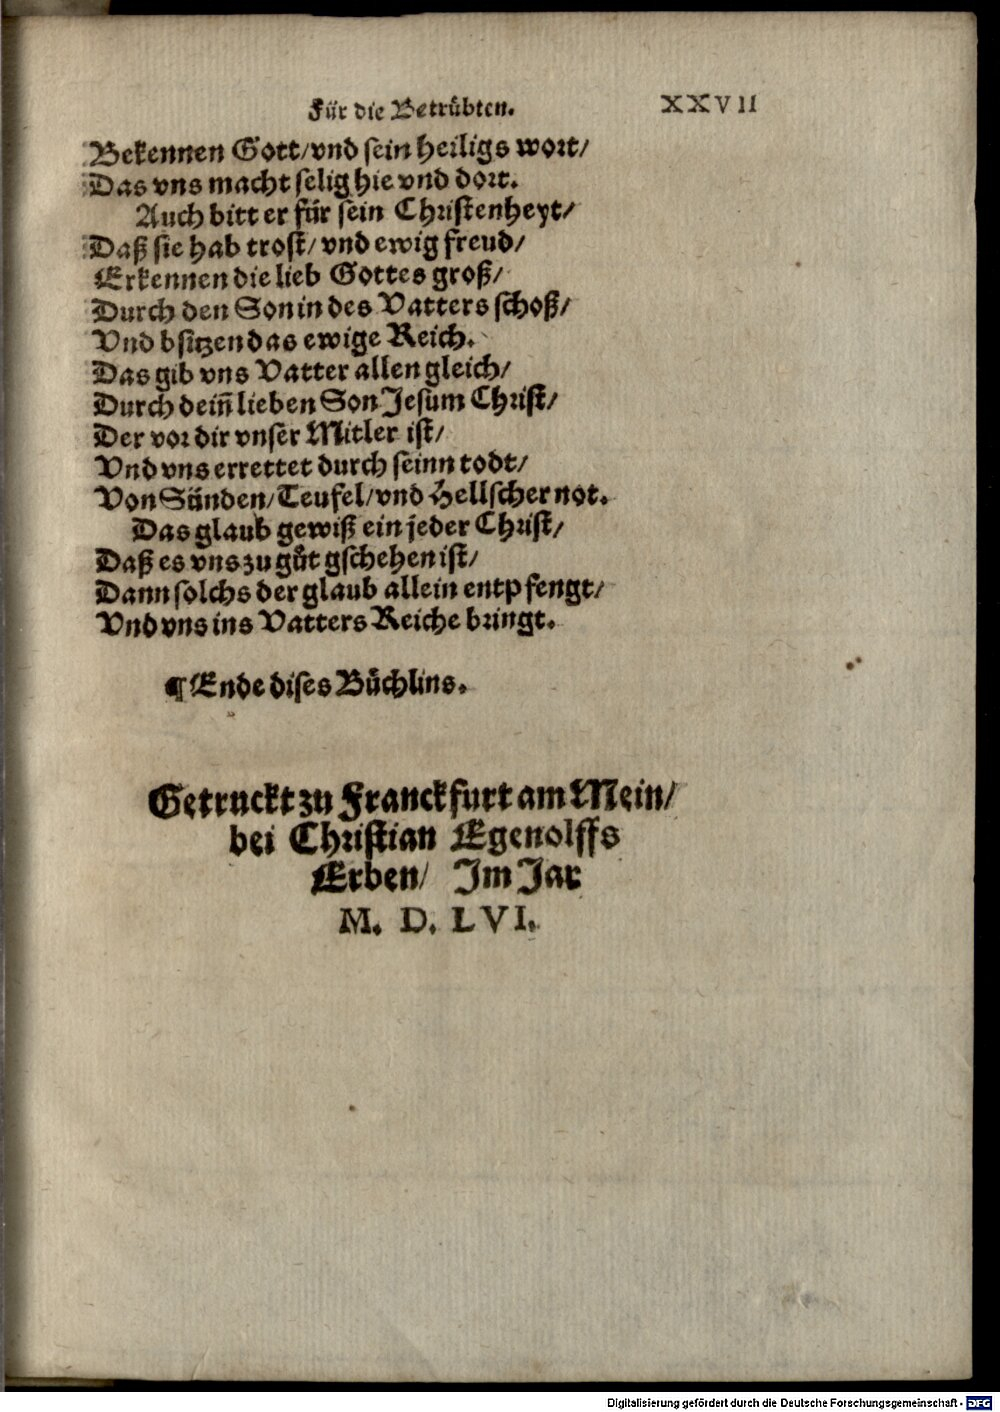 Für die Betrůbten. XXVII
Bekennen Gott/vnd sein heiligs wort/
Das vns macht selig hie vnd dort.
Auch bitt er für sein Christenheyt/
Daß sie hab trost/ vnd ewig freud/
Erkennen die lieb Gottes groß/
Durch den Son in des Vatters schoß/
Vnd bsitzen das ewige Reich.
Das gib vns Vatter allen gleich/
Durch deiñ lieben Son Jesum Christ/
Der vor dir vnser Mitler ist/
Vnd vns errettet durch seinn todt/
Von Sünden/Teufel/vnd Hellscher not.
Das glaub gewiß ein jeder Christ/
Daß es vns zu gůt gschehen ist/
Dann solchs der glaub allein entpfengt/
Vnd vns ins Vatters Reiche bringt.
¶ Ende dises Bůchlins.
Getruckt zu Franckfurt am Mein/
bei Christian Egenolffs
Erben/ Im Jar
M. D. LVI.
Digitalisierung gefördert durch die Deutsche Forschungsgemeinschaft - DFG